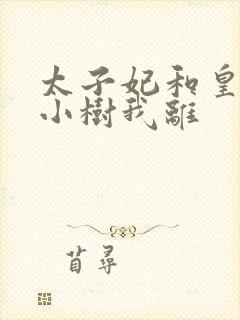 太子妃和皇
小樹我離
苜尋